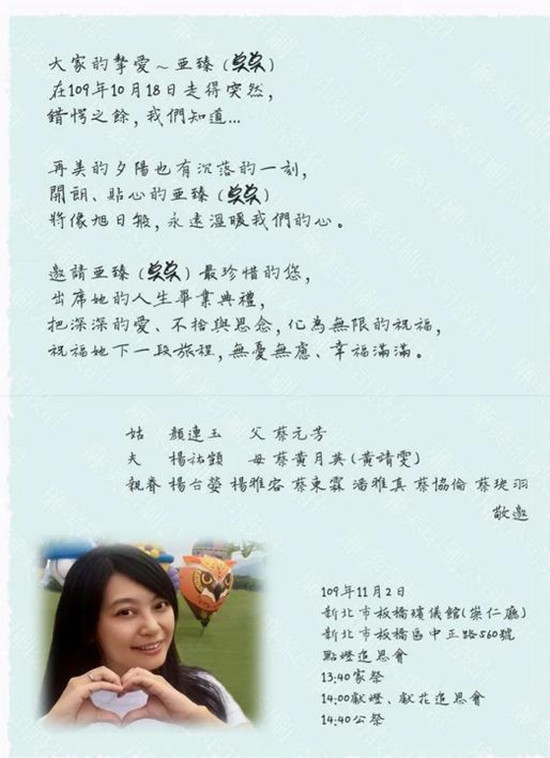 大家的摯愛～亞臻(奐奐)
在109年10月18日走得突然，
錯愕之餘，我們知道...
再美的夕陽也有沉落的一刻，
開朗、貼心的亞臻(奐奐)
將像旭日般，永遠溫暖我們的心。
邀請亞臻(奐奐)最珍惜的您，
出席她的人生畢業典禮，
把深深的愛、不捨與思念，化為無限的祝福，
祝福她下一段旅程，無憂無慮、幸福滿滿。
姑 顏連玉 父 蔡元芳
夫 楊祐顗 母 蔡黃月英(黃靖雯)
親眷 楊台鎣 楊雅容 蔡東霖 潘雅真 蔡協倫 蔡琁羽
敬邀
109年11月2日
新北市板橋殯儀館(崇仁廳)
新北市板橋區中正路560號
點燈追思會
13:40家祭
14:00獻燈、獻花追思會
14:40公祭